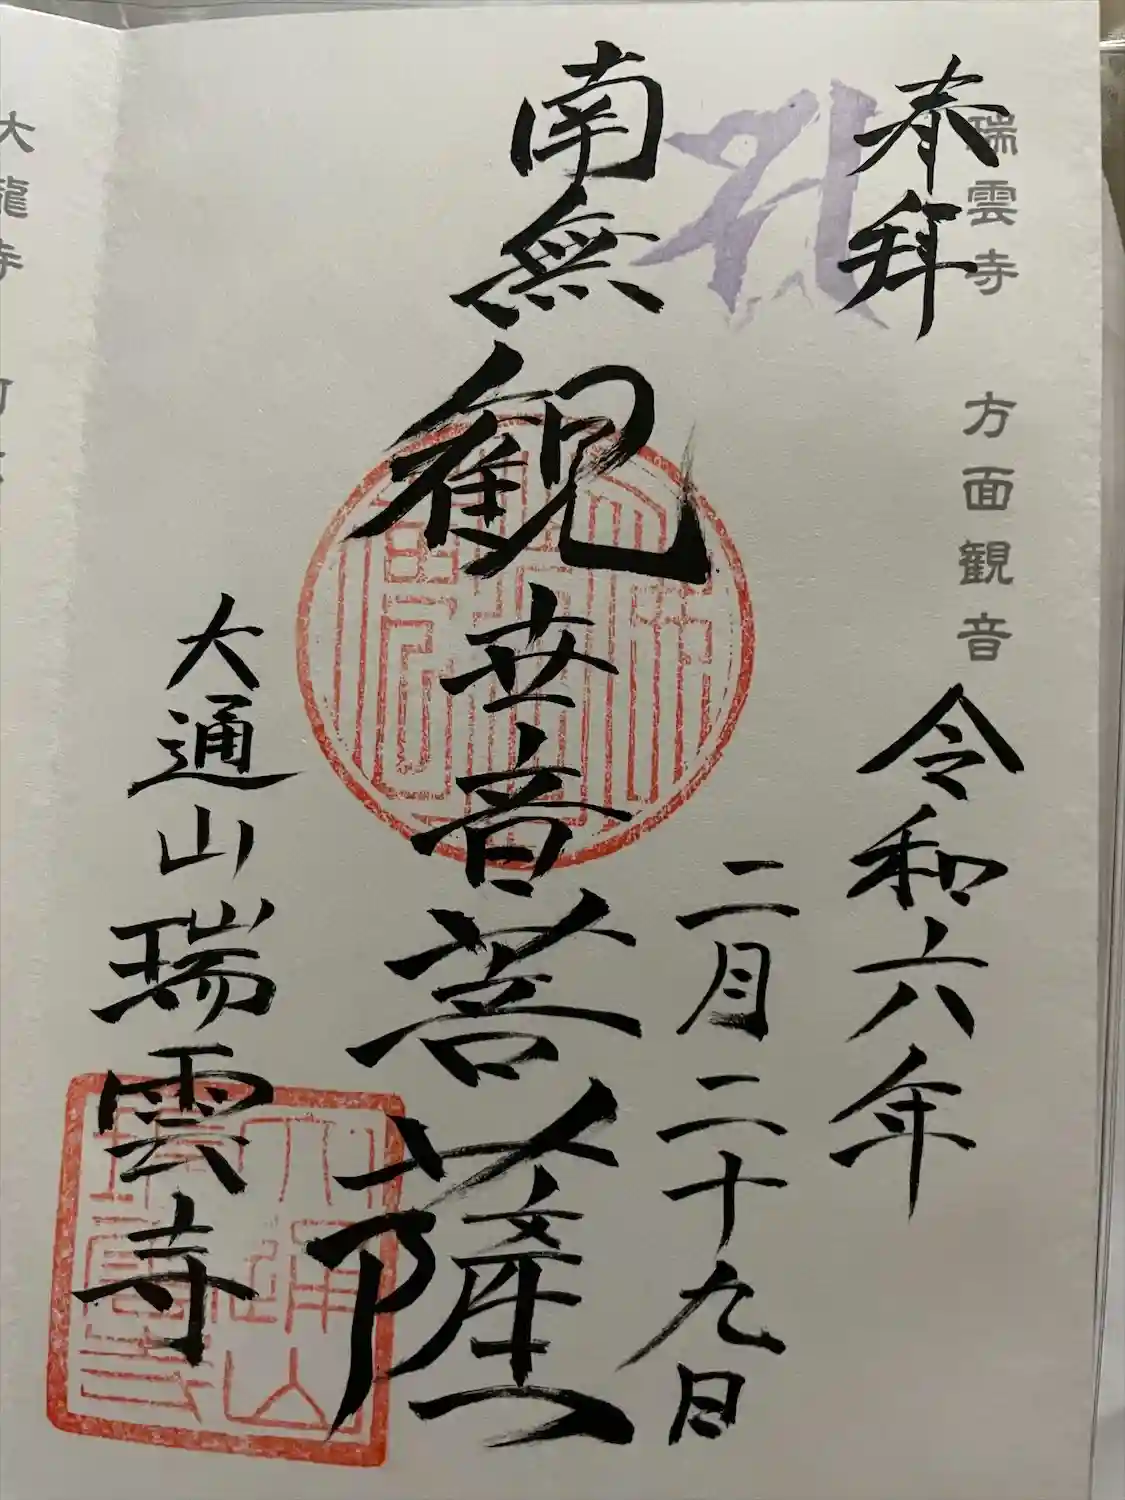 瑞雲寺 方面観音
奉拜
令和六年
二月二十九日
南無観世音菩薩
大通山瑞雲寺
大龍寺